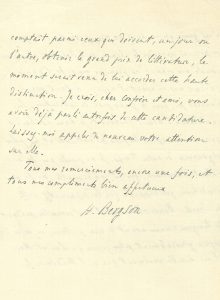 comptait parmi ceux qui doivent, un jour ou
l'autre, obtenir le grand prix de littérature, le
moment serait venu de lui accorder cette haute
distinction. Je crois, cher confrère et ami, vous
avoir déjà parlé autrefois de cette candidature.
Laissez-moi appeler de nouveau votre attention
sur elle.
Tous mes remerciements, encore une fois, et
tous mes compliments bien affectueux
H. Bergson